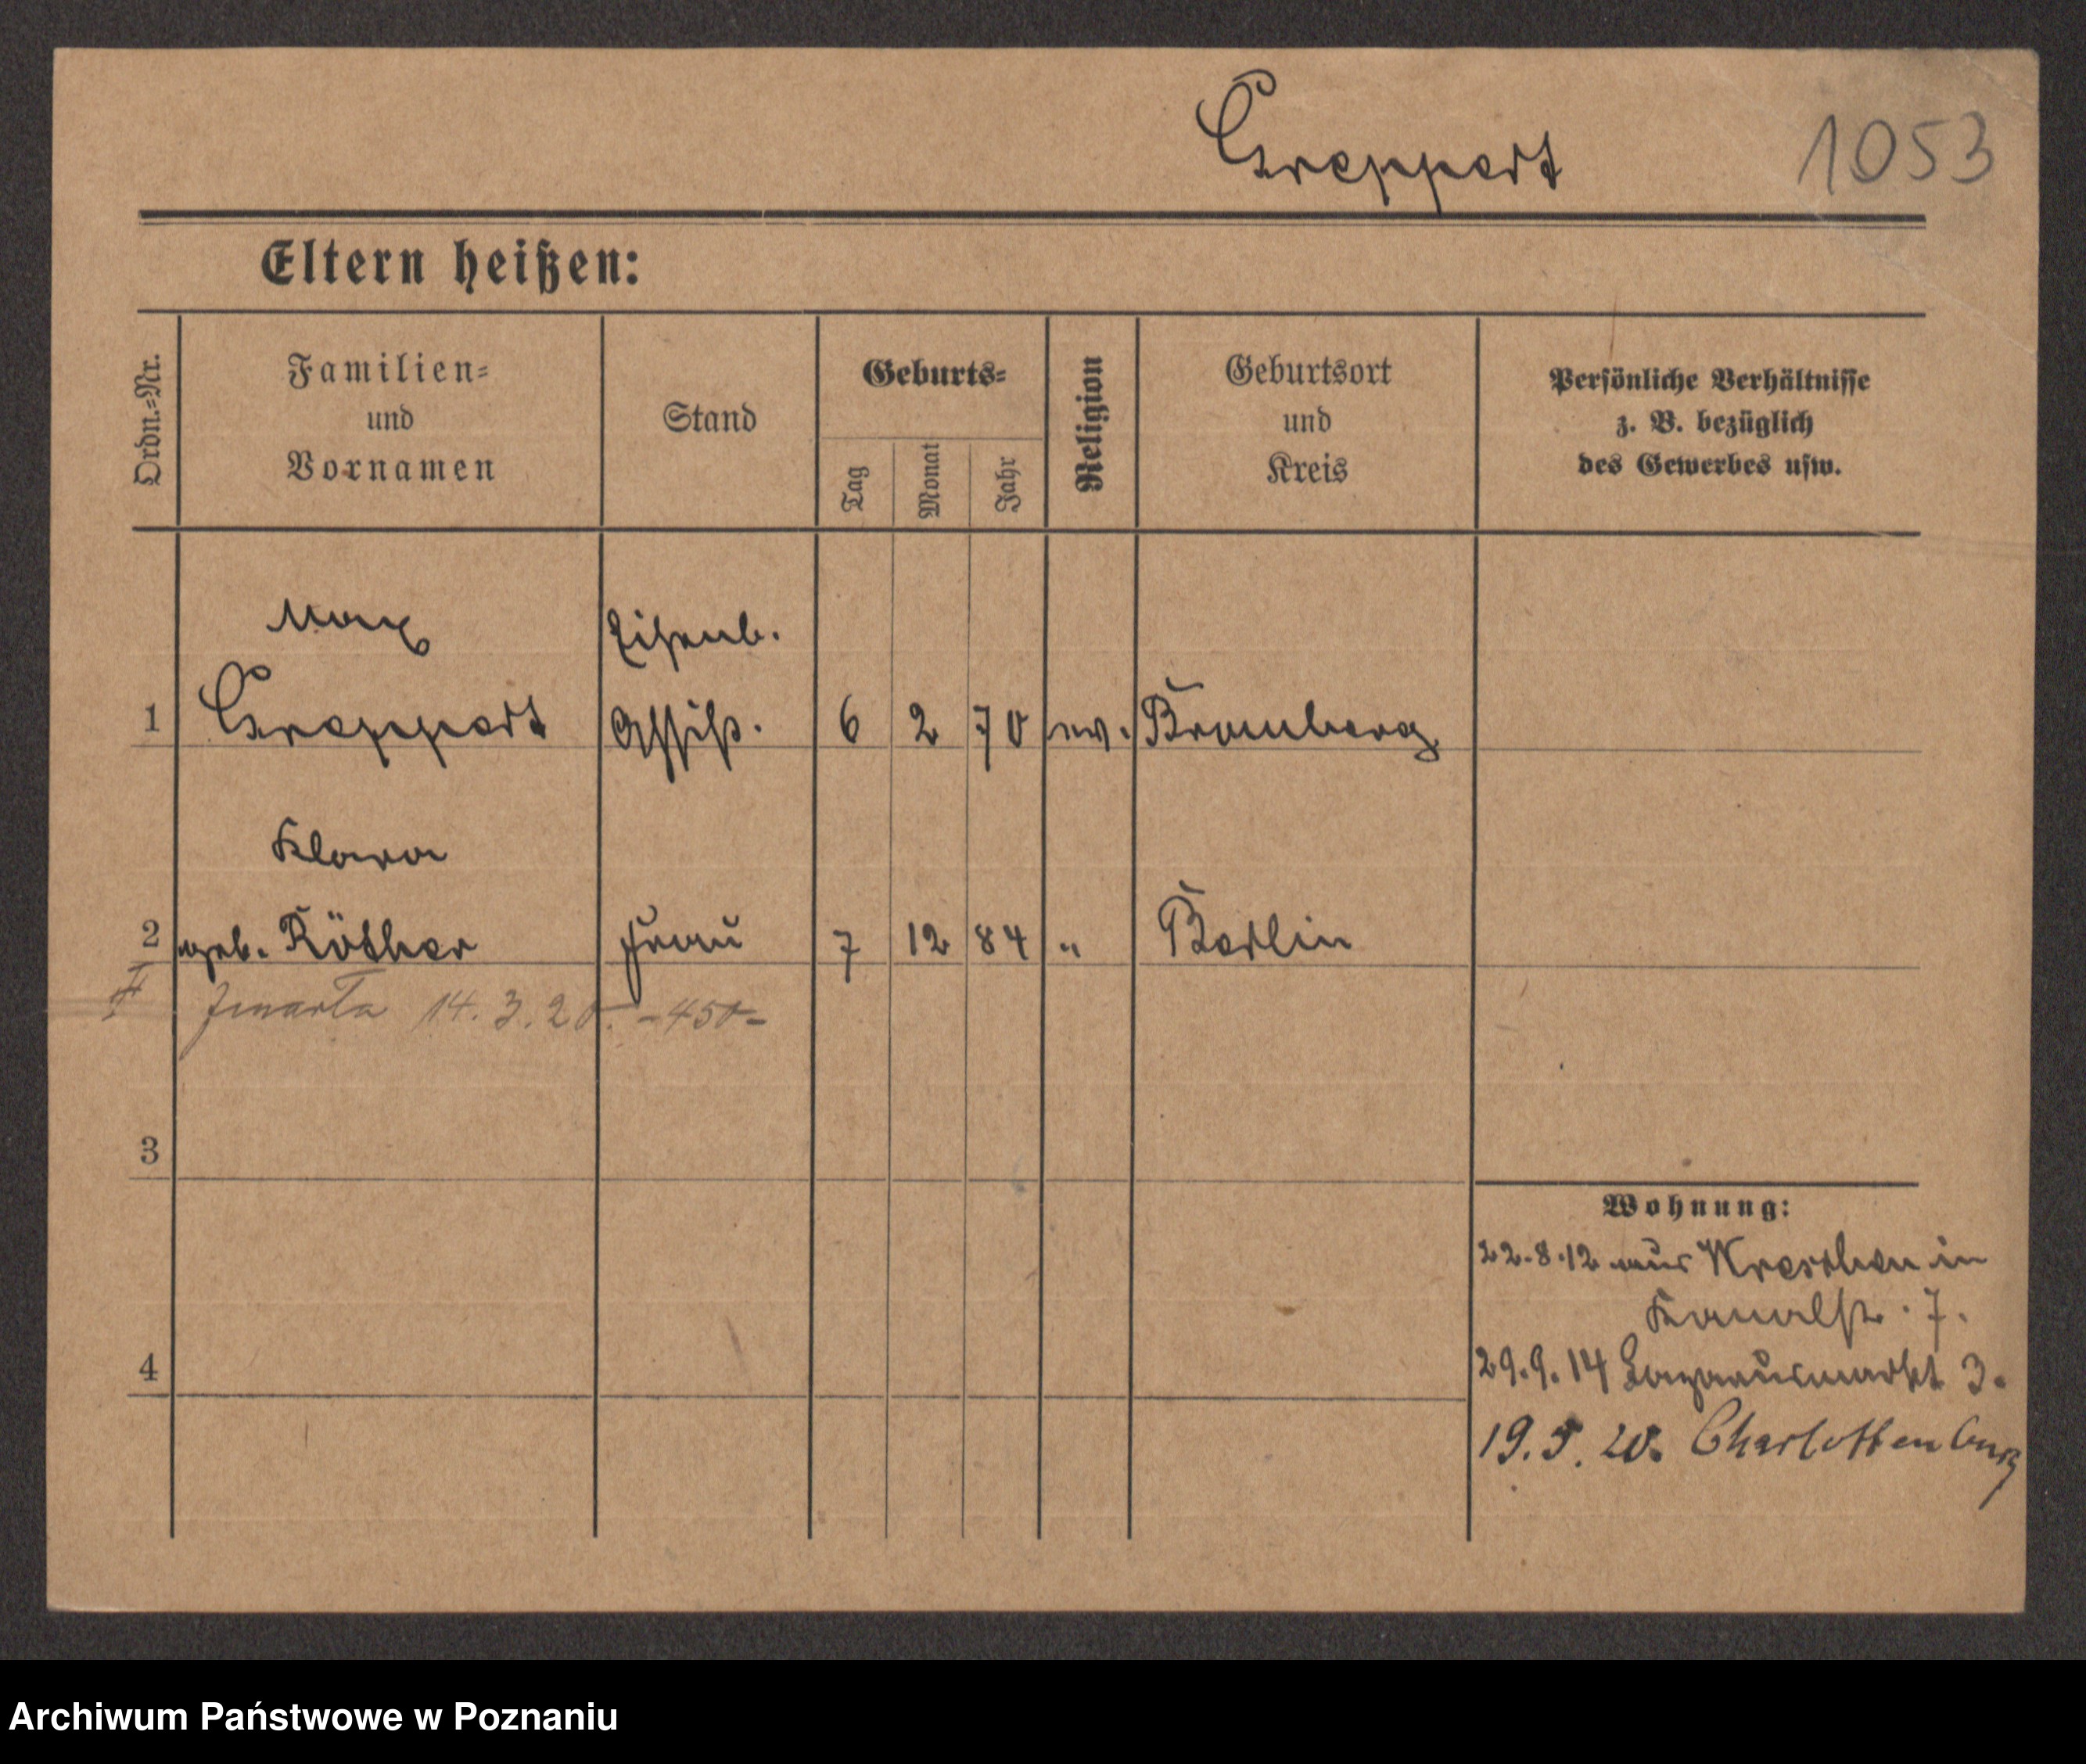 Greppert
1053
Eltern heißen:
Ordn.=Nr.
Familien=
und
Vornamen
Stand
Geburts=
Tag
Monat
Jahr
Religion
Geburtsort
und
Kreis
Persönliche Verhältnisse
z. B. bezüglich
des Gewerbes usw.
Max Eisenb.
1 Greppert Assist. 6 2 70 ev. Bromberg
Klara
2 geb. Röther Frau 7 12 84 " Berlin
zmarła 14.3.20. -450-
3
Wohnung:
22.8.12 aus in
Kanalstr. 7.
4
29.9.14 Lazarusmarkt 3.
19.5.20. Charlottenburg
Archiwum Państwowe w Poznaniu